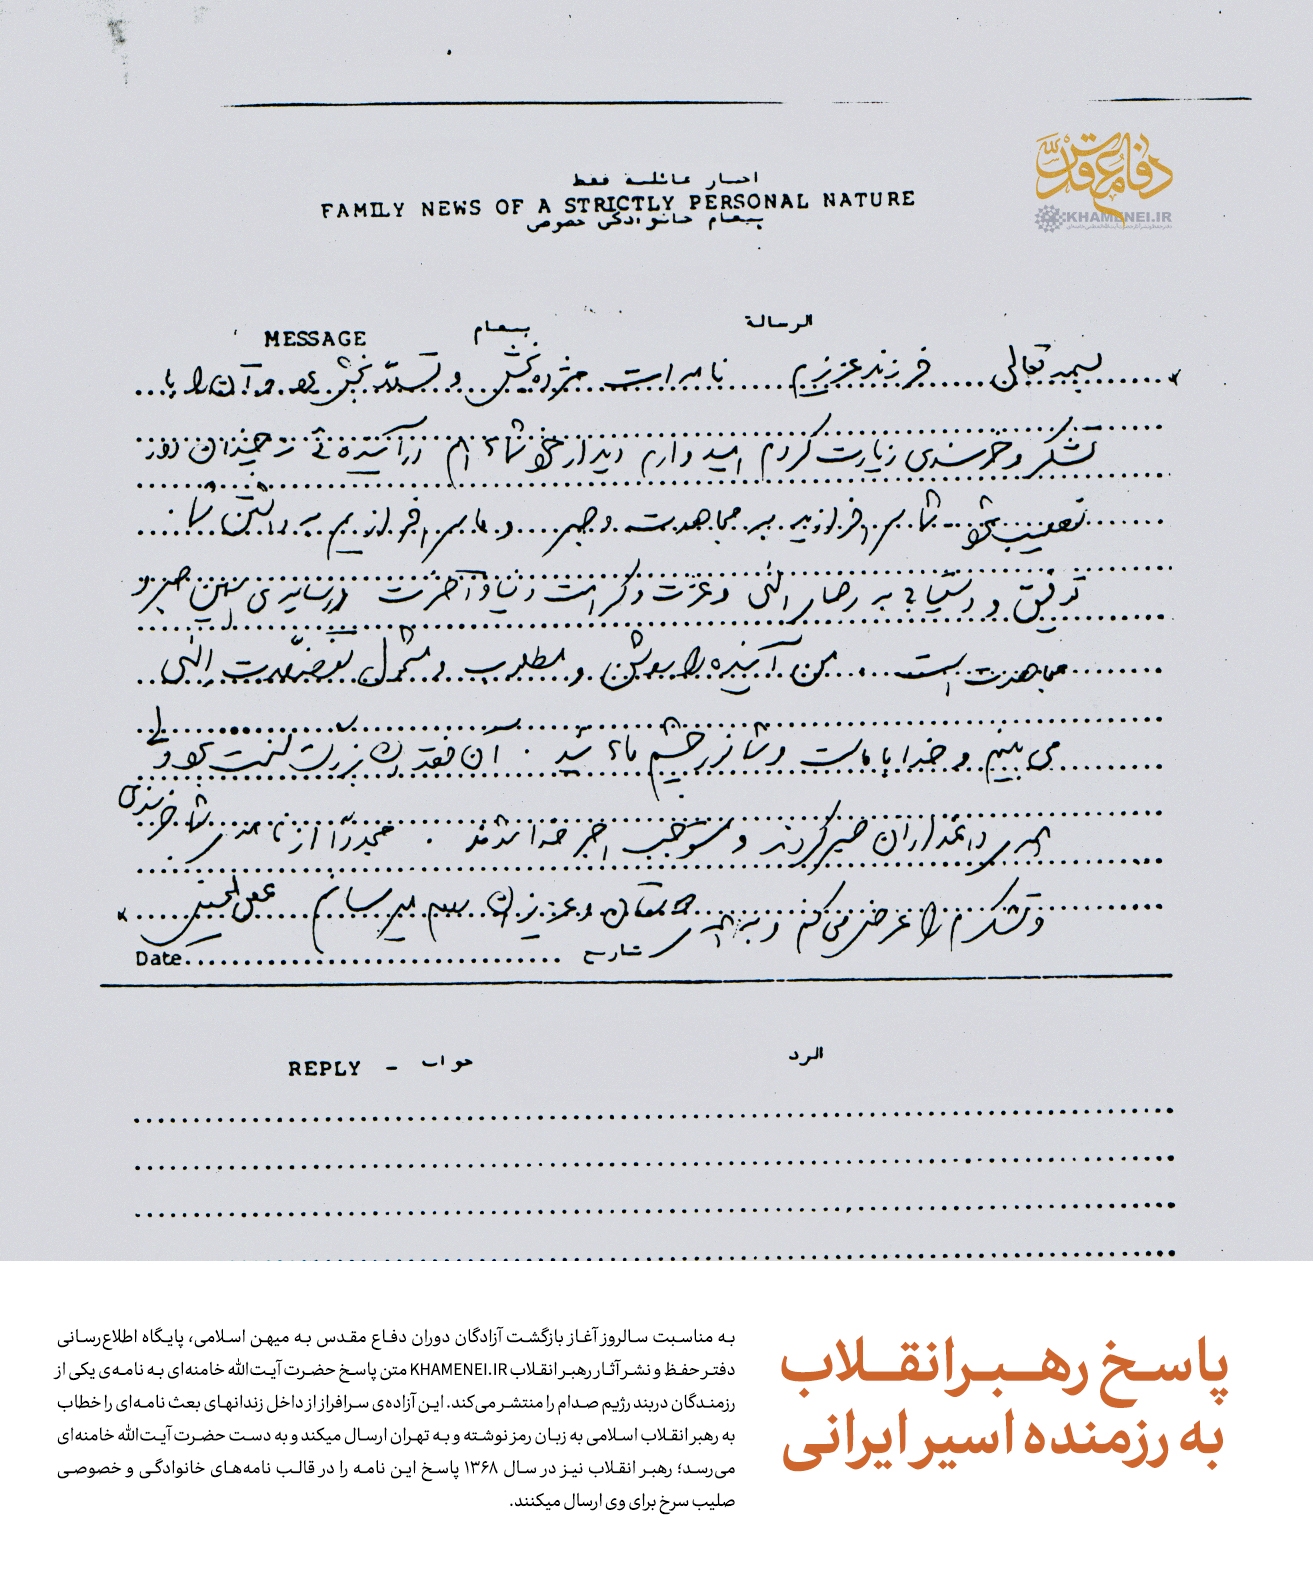 دفاع مقدس
KHAMENEI.IR
اخبار عائلية فقط
FAMILY NEWS OF A STRICTLY PERSONAL NATURE
پیغام خانوادگی خصوصی
الرسالة پیغام MESSAGE
بسمه تعالی فرزند عزیزم نامه‌ات مژده‌بخش و تسلّابخش بود و آن را با
تشکر و خرسندی زیارت کردم امیدوارم دیدار خود شما هم در آینده‌ئی نه چندان دور
نصیب شود شما سرافرازید به مجاهدت و صبر و ما سرافرازیم به داشتن شما
توفیق و دستیابی به رضای الهی و عزت و کرامت دنیا و آخرت در سایه‌ی همین صبر و
مجاهدت است من آینده را روشن و مطلوب و مشمول تفضلات الهی
می‌بینم و خدا با ماست و شما نور چشم مائید آن فقدان بزرگ سخت بود ولی
همه‌ی داغداران صبر کردند و مستوجب اجر خدا شدند مجدداً از نامه‌ی شما خرسندی
و تشکرم را عرض می‌کنم و به همه‌ی و عزیزان سلام میرسانم
تاریخ Date
الرد جواب - REPLY
پاسخ رهبر انقلاب
به رزمنده اسیر ایرانی
به مناسبت سالروز آغاز بازگشت آزادگان دوران دفاع مقدس به میهن اسلامی، پایگاه اطلاع‌رسانی
دفتر حفظ و نشر آثار رهبر انقلاب KHAMENEI.IR متن پاسخ حضرت آیت‌الله خامنه‌ای به نامه‌ی یکی از
رزمندگان دربند رژیم صدام را منتشر می‌کند. این آزاده‌ی سرافراز از داخل زندانهای بعث نامه‌ای را خطاب
به رهبر انقلاب اسلامی به زبان رمز نوشته و به تهران ارسال میکند و به دست حضرت آیت‌الله خامنه‌ای
می‌رسد؛ رهبر انقلاب نیز در سال ۱۳۶۸ پاسخ این نامه را در قالب نامه‌های خانوادگی و خصوصی
صلیب سرخ برای وی ارسال میکنند.